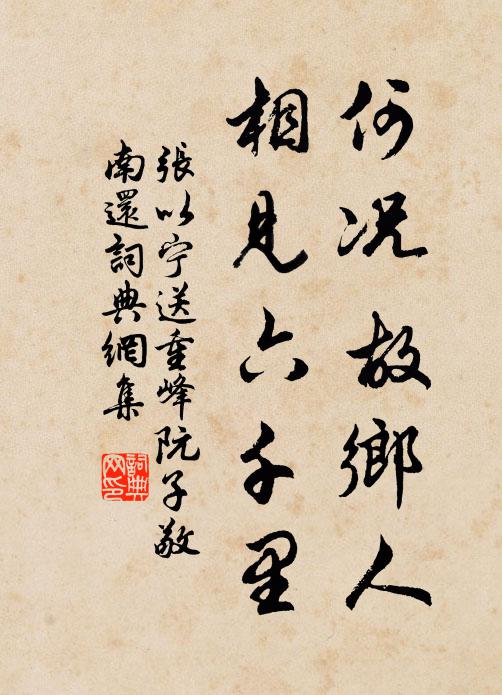 何况故鄉人
相見六千里
張以宁送重峰阮子敬
南還詞典網集
詞典網印